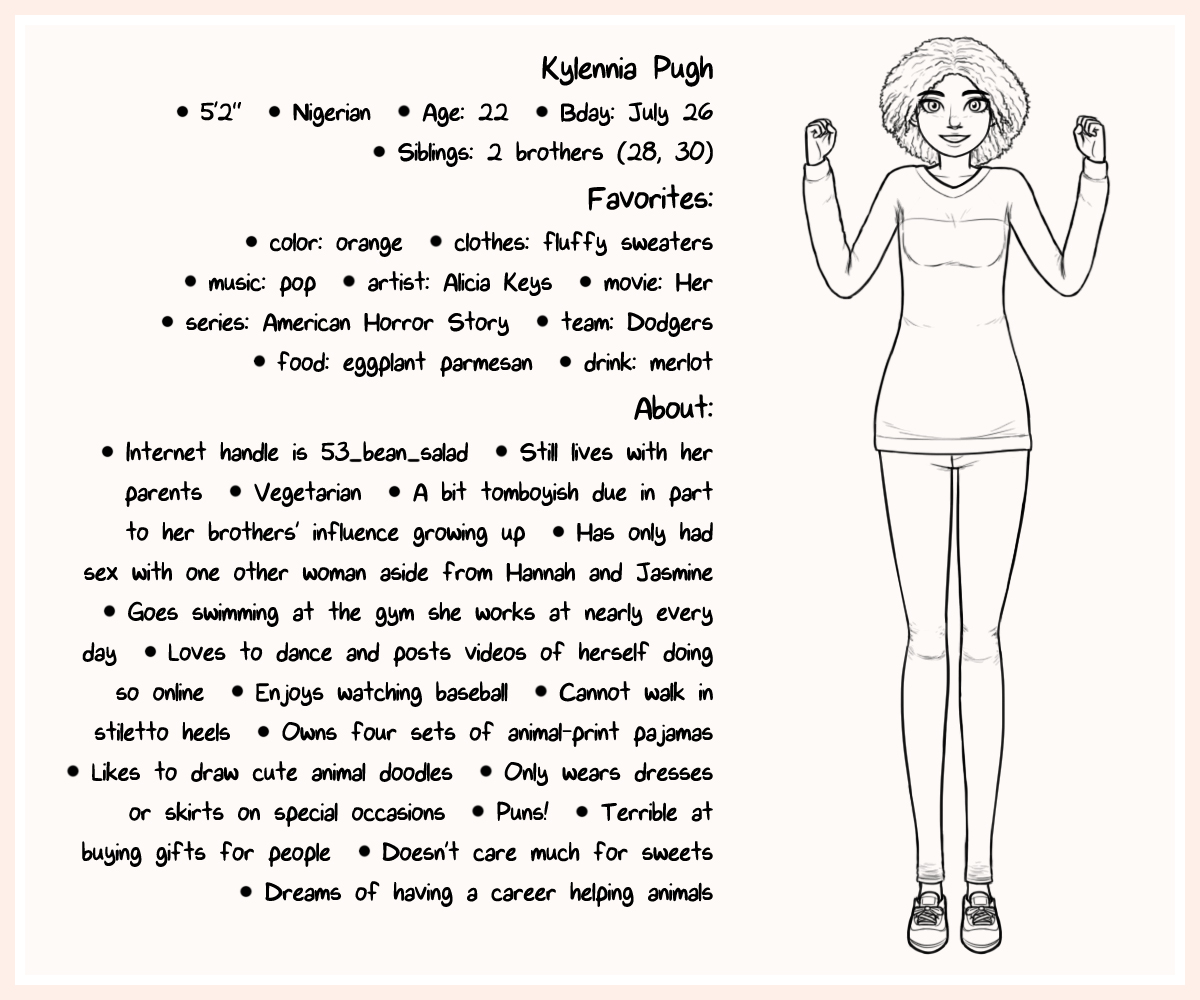 Kylennia Pugh
• 5'2" • Nigerian • Age: 22 • Bday: July 26
• Siblings: 2 brothers (28, 30)
Favorites:
• color: orange • clothes: fluffy sweaters
• music: pop • artist: Alicia Keys • movie: Her
• series: American Horror Story • team: Dodgers
• food: eggplant parmesan • drink: merlot
About:
• Internet handle is 53_bean_salad • Still lives with her
parents • Vegetarian • A bit tomboyish due in part
to her brothers' influence growing up • Has only had
sex with one other woman aside from Hannah and Jasmine
• Goes swimming at the gym she works at nearly every
day • Loves to dance and posts videos of herself doing
so online • Enjoys watching baseball • Cannot walk in
stiletto heels • Owns four sets of animal-print pajamas
• Likes to draw cute animal doodles • Only wears dresses
or skirts on special occasions • Puns! • Terrible at
buying gifts for people • Doesn't care much for sweets
• Dreams of having a career helping animals